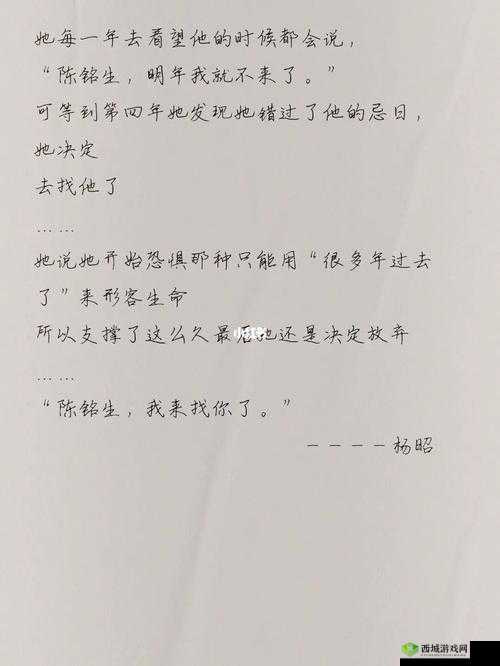 她每一年去看望他的时候都会说，
“陈铭生，明年我就不来了。”
可等到第四年她发现她错过了他的忌日，
她决定
去找他了
……
她说她开始恐惧那种只能用“很多年过去
了”来形容生命
所以支撑了这么久最后她还是决定放弃
……
“陈铭生，我来找你了。”
————杨昭
小红书
西城游戏网